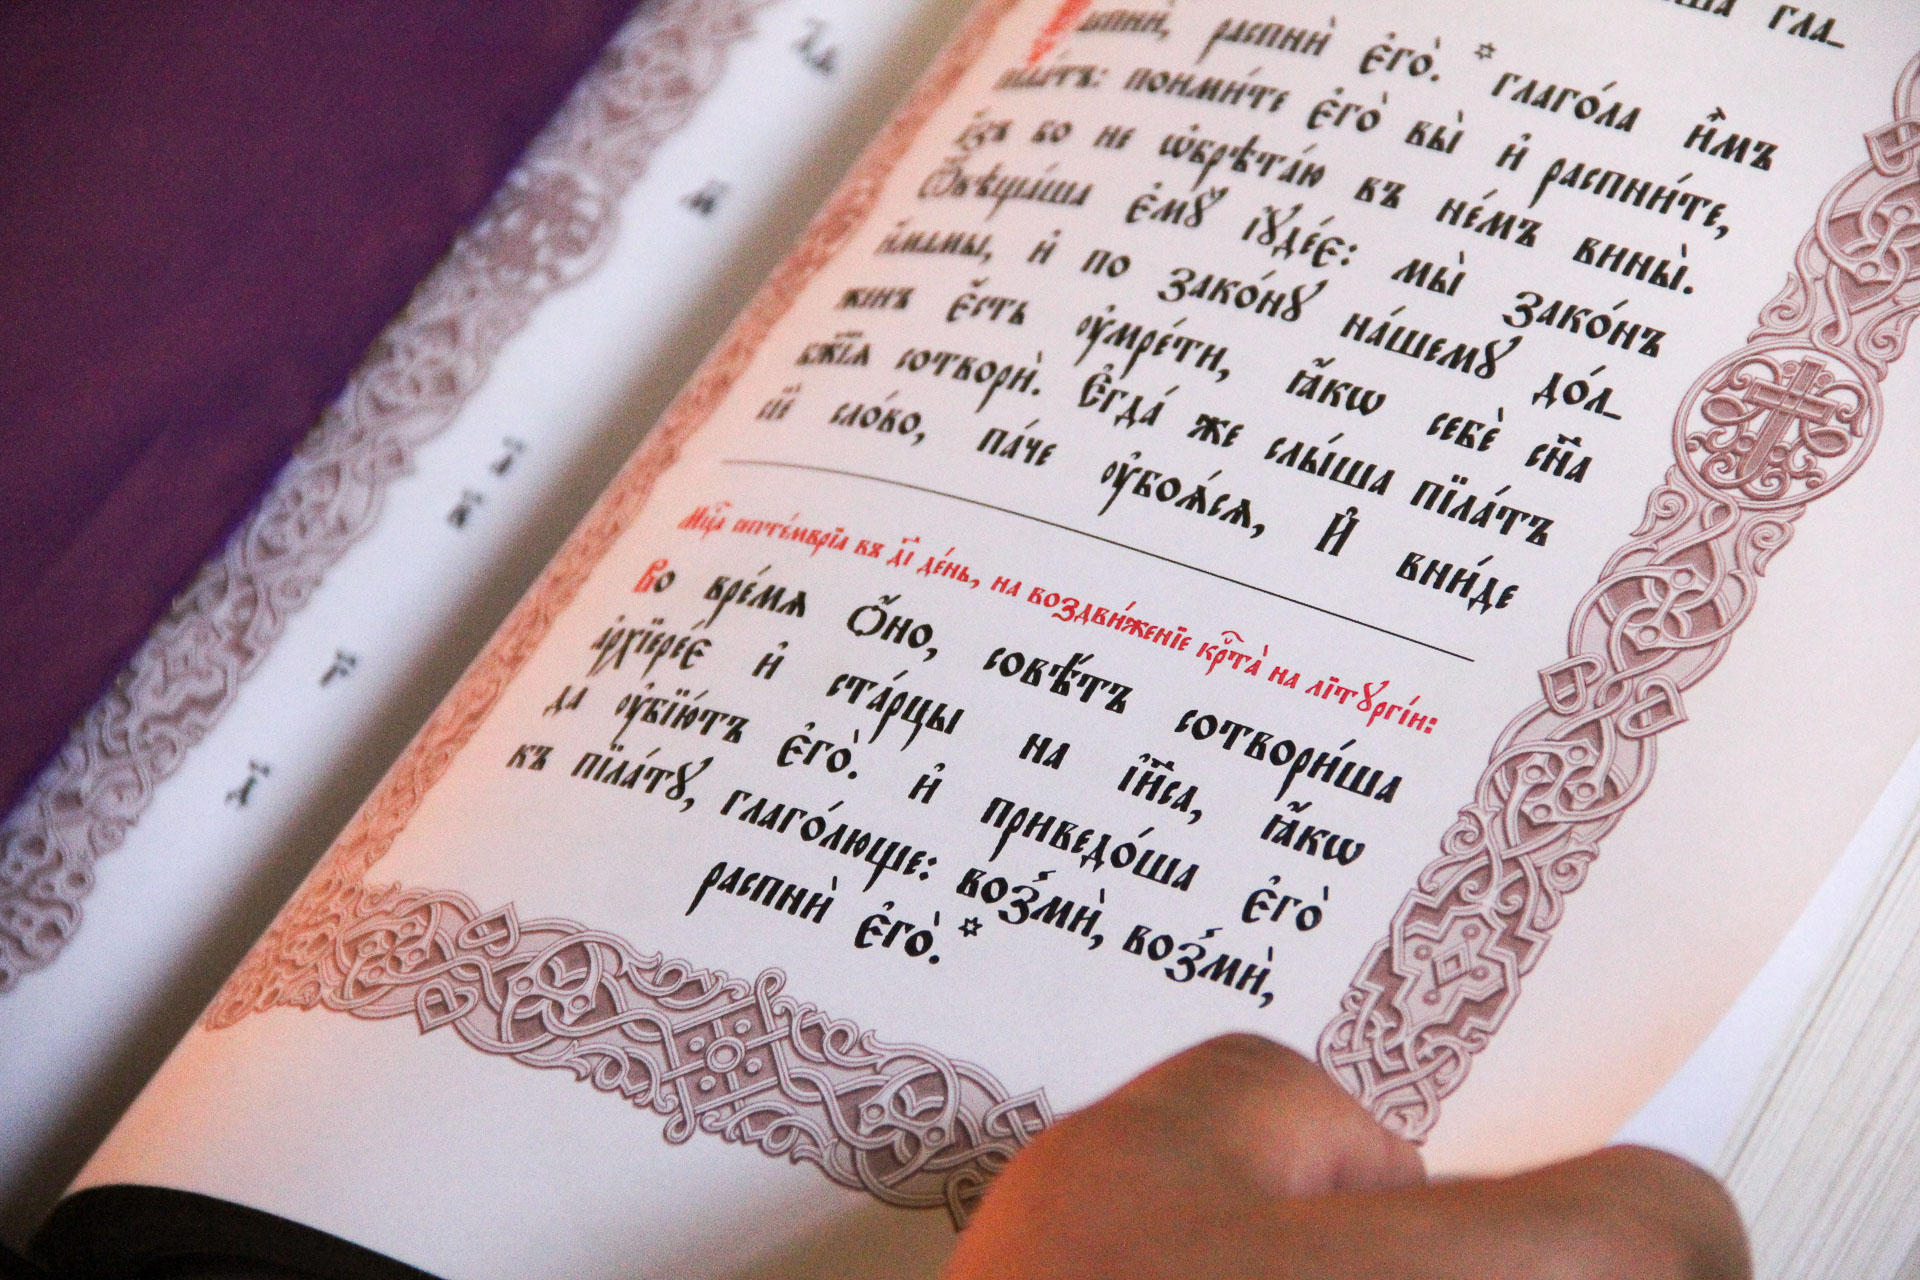 гла-
распнѝ є҆гѡ̀. * глаго́ла и҆̀мъ
пїла́тъ: поими́те є҆го̀ вы̀ и҆ распни́те,
а҆́зъ бо не ѡ҆брѣта́ю въ не́мъ вины̀.
Ѿвѣща́ша є҆мꙋ̀ і҆ꙋде́є: мы̀ зако́нъ
и҆́мамы, и҆ по зако́нꙋ на́шемꙋ до́л-
женъ є҆́сть ᲂу҆мре́ти, ꙗ҆́кѡ себѐ сн҃а
бж҃їѧ сотворѝ. Є҆гда́ же слы́ша пїла́тъ
сїѐ сло́во, па́че ᲂу҆боѧ́сѧ, И҆ вни́де
Мцⷭ҇а септе́мврїа въ д҃і де́нь, на воздви́женїе крⷭ҇та̀ на лїтꙋргі́и:
Во вре́мѧ ѻ҆́но, совѣ́тъ сотвори́ша
а҆рхїере́є и҆ ста́рцы на і҆и҃са, ꙗ҆́кѡ
да ᲂу҆бїю́тъ є҆го̀. и҆ приведо́ша є҆го̀
къ пїла́тꙋ, глаго́люще: возмѝ, возмѝ,
распнѝ є҆го̀. *